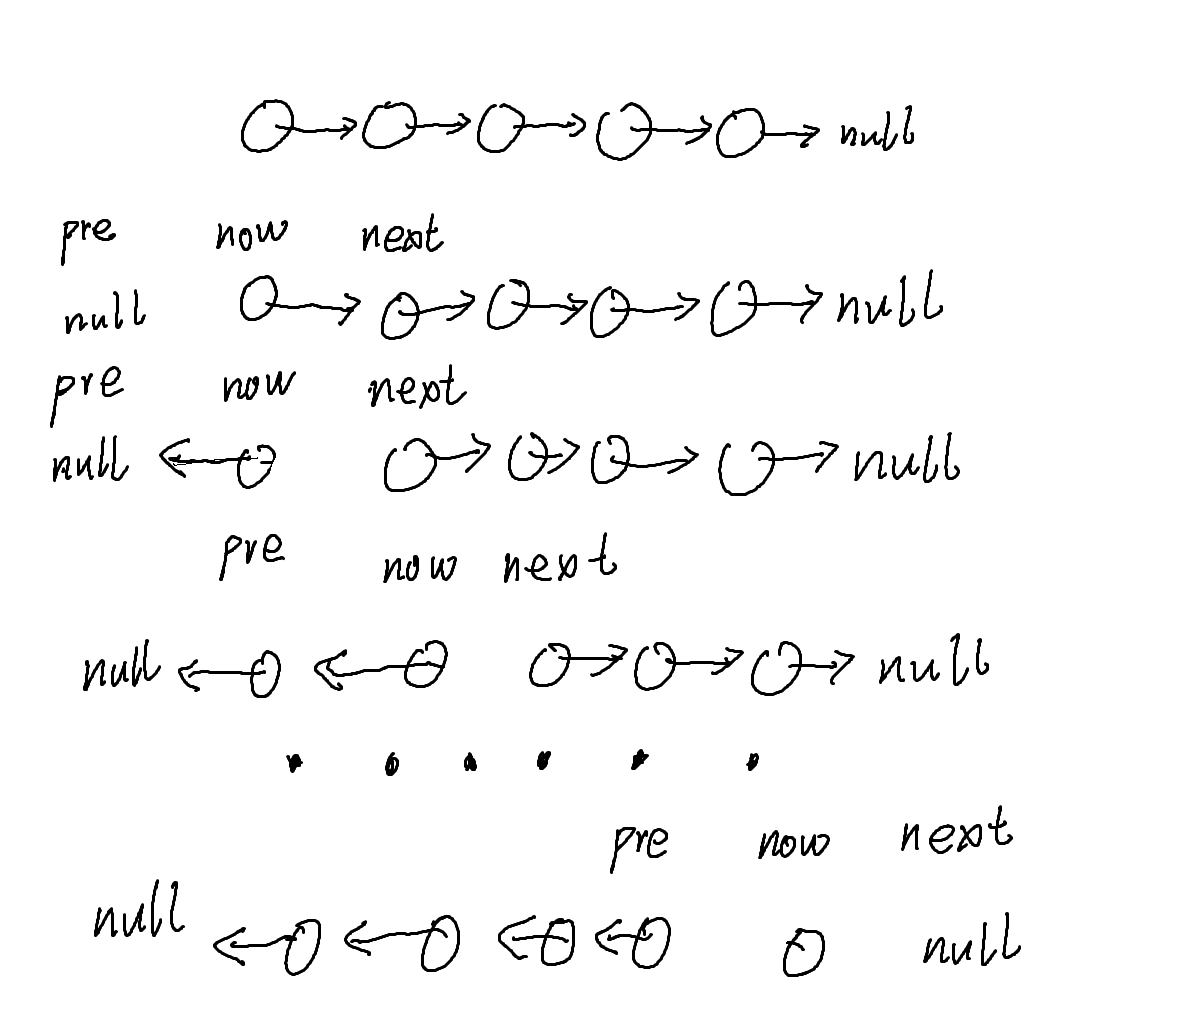 null
pre now next
null null
pre now next
null null
pre now next
null null
pre now next
null null